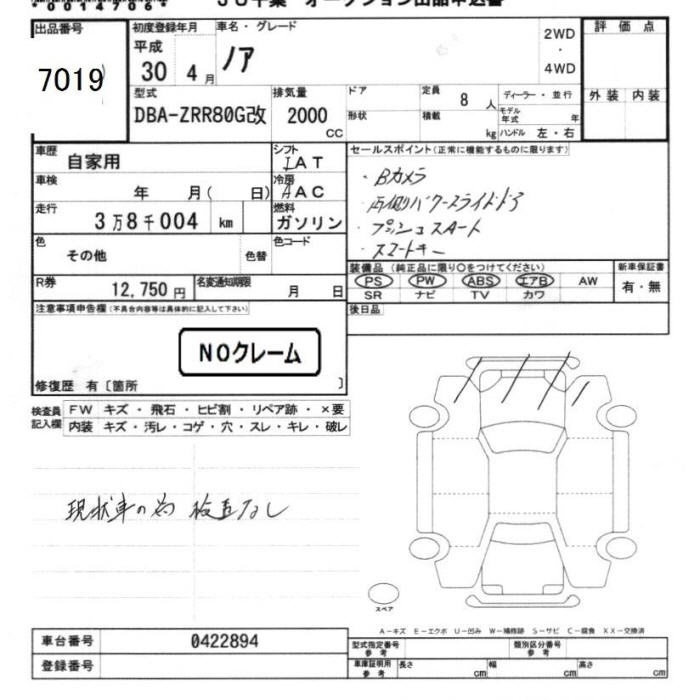 JU千葉 オークション出品申込書
出品番号
7019
初度登録年月
平成
30年 4月
車名・グレード
ノア
2WD
・
4WD
評価点
外装 内装
型式
DBA-ZRR80G改
排気量
2000
CC
ドア
形状
定員
8人
積載
kg
ディーラー・並行
モデル年式 年
ハンドル 左・右
車歴
自家用
シフト
IAT
車検
年 月( 日)
冷房
AAC
走行
3万8千004 km
燃料
ガソリン
色
その他
色替
色コード
R券
12,750円
名変通知期限
月 日
セールスポイント(正常に機能するものに限ります)
・Bカメラ
・両側パワースライドドア
・プッシュスタート
・スマートキー
装備品(純正品に限り○をつけてください)
PS PW ABS エアB AW
SR ナビ TV カワ
新車保証書
有・無
後日品
注意事項申告欄(不具合内容等は具体的に記入して下さい)
NOクレーム
修復歴 有〔箇所 〕
検査員記入欄
FW キズ・飛石・ヒビ割・リペア跡・×要
内装 キズ・汚レ・コゲ・穴・スレ・キレ・破レ
現状車の為 検査なし
スペア
A−キズ E−エクボ U−凹み W−補修跡 S−サビ C−腐食 XX−交換済
車台番号
0422894
登録番号
型式指定番号
参考
類別区分番号
参考
車庫証明用
参考
長さ cm
幅 cm
高さ cm